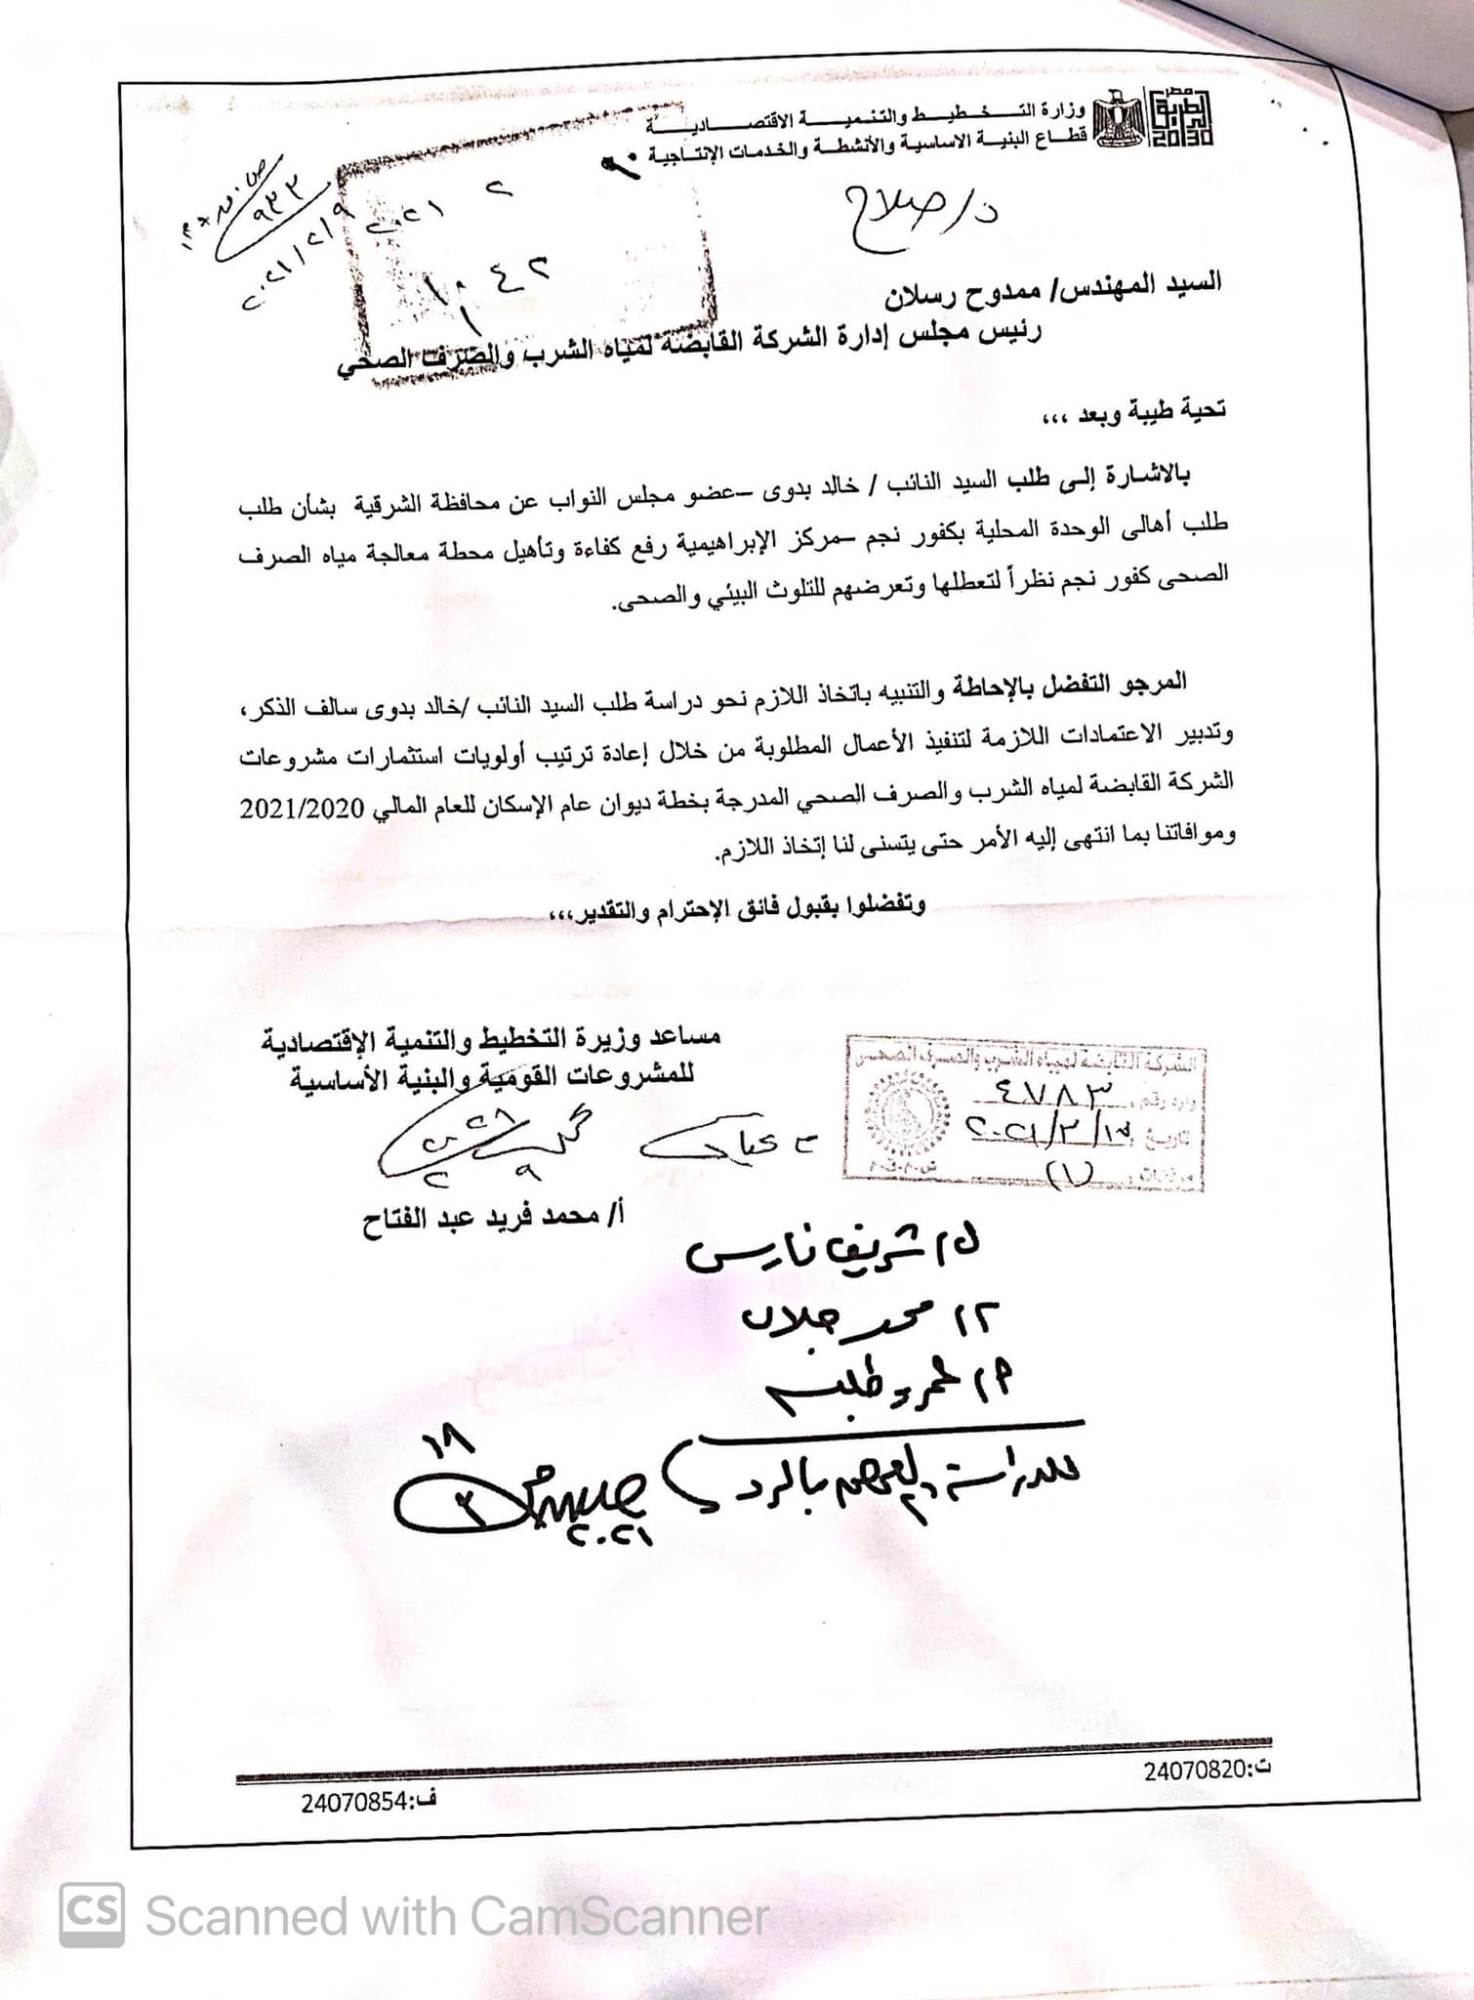 وزارة التخطيط والتنمية الاقتصادية
قطاع البنية الاساسية والأنشطة والخدمات الإنتاجية
مصر
2030
د/ صلاح
٩٣٢
٢٠٢١/٢/٩
٢٠٢١ ٢
١٠٤٢
١
السيد المهندس/ ممدوح رسلان
رئيس مجلس إدارة الشركة القابضة لمياه الشرب والصرف الصحي
تحية طيبة وبعد ،،،
بالاشارة إلى طلب السيد النائب / خالد بدوى –عضو مجلس النواب عن محافظة الشرقية بشأن طلب
طلب أهالى الوحدة المحلية بكفور نجم –مركز الإبراهيمية رفع كفاءة وتأهيل محطة معالجة مياه الصرف
الصحى كفور نجم نظراً لتعطلها وتعرضهم للتلوث البيئي والصحى.
المرجو التفضل بالإحاطة والتنبيه باتخاذ اللازم نحو دراسة طلب السيد النائب /خالد بدوى سالف الذكر،
وتدبير الاعتمادات اللازمة لتنفيذ الأعمال المطلوبة من خلال إعادة ترتيب أولويات استثمارات مشروعات
الشركة القابضة لمياه الشرب والصرف الصحي المدرجة بخطة ديوان عام الإسكان للعام المالي 2021/2020
وموافاتنا بما انتهى إليه الأمر حتى يتسنى لنا إتخاذ اللازم.
وتفضلوا بقبول فائق الإحترام والتقدير،،،
مساعد وزيرة التخطيط والتنمية الإقتصادية
للمشروعات القومية والبنية الأساسية
أ/ محمد فريد عبد الفتاح
الشركة القابضة لمياه الشرب والصرف الصحي
وارد رقم ٤٧٨٣
تاريخ
مرفقات (١)
م/ شريف فارس
م/ محمد جلال
م/ عمرو طلبه
للدراسة والعرض بالرد
١٨
٣
٢٠٢١
ت:24070820
ف:24070854
CS Scanned with CamScanner